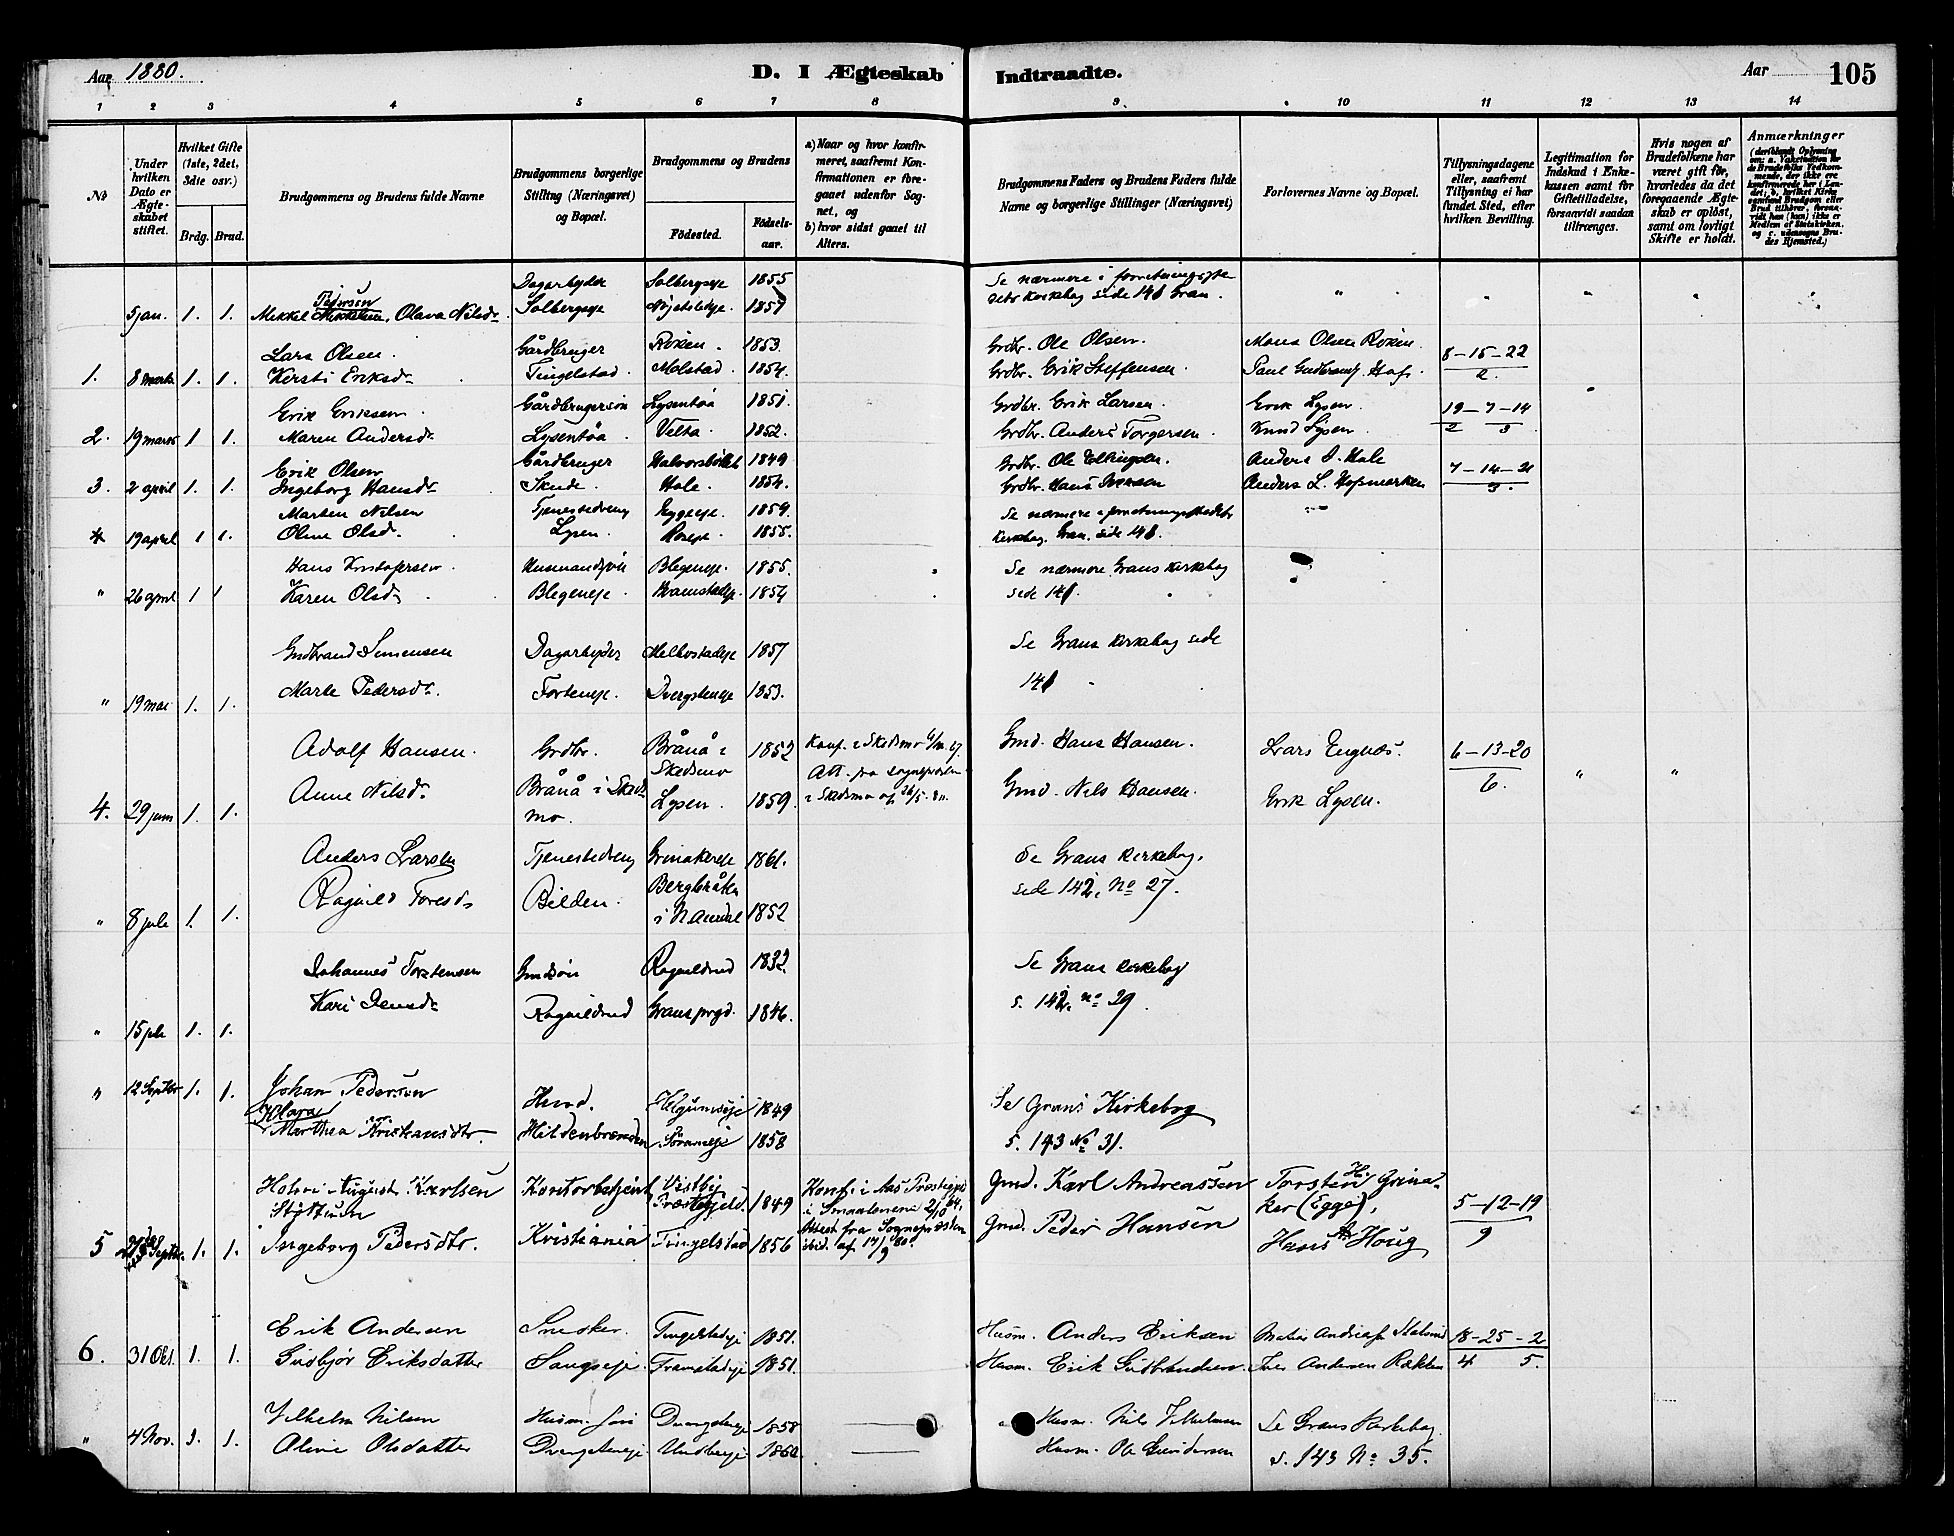 Aar 1880. D. I Ægteskab Indtraadte. Aar 105
1 2 3 4 5 6 7 8 9 10 11 12 13 14
No
Under hvilken Dato er Ægteskabet stiftet.
Hvilket Gifte (1ste, 2det, 3die osv.)
Brdg. Brud.
Brudgommens og Brudens fulde Navne
Brudgommens borgerlige Stilling (Næringsvei) og Bopæl.
Brudgommens og Brudens
Födested. Födselsaar.
a) Naar og hvor konfirmeret, saafremt Konfirmationen er foregaaet udenfor Sognet, og
b) hvor sidst gaaet til Alters.
Brudgommens Faders og Brudens Faders fulde Navne og borgerlige Stillinger (Næringsvei)
Forlovernes Navne og Bopæl.
Tillysningsdagene eller, saafremt Tillysning ei har fundet Sted, efter hvilken Bevilling.
Legitimation for Indskud i Enkekassen samt for Giftetilladelse, forsaavidt saadan tiltrænges.
Hvis nogen af Brudefolkene har været gift før, hvorledes da det foregaaende Ægteskab er opløst, samt om lovligt Skifte er holdt.
Anmærkninger
Dagarbeider Solbergseie 1855 Se nærmere i
5 jan. 1. 1. Mikkel Pedersen, Olava Nilsdr. Solbergseie 1857 kirkebog side 141 Gran.
Lars Olsen. Gårdbruger Röken. 1853. Grdbr. Ole Olsen. Mons Olsen Röken. 8-15-22
1. 8 marts 1. 1. Kersti Eriksdr. Tingelstad. Molstad. 1854. Grdbr. Erik Steffensen. Paul Hof. 2.
Erik Eriksen. Gårdbrugersön Lysentöa 1851. Grdbr. Erik Larsen. Erik Lysen. 19-7-14
2. 19 marts 1 1. Maren Andersdr. Lysentöa. Velta. 1852. Grdbr. Anders Torgersen. Knud Lysen. 2 3
Erik Olsen Gårdbruger Halvorsbölet 1849 Grdbr. Ole Ellingsen. Anders S. Hole 7-14-21
3. 2 april 1. 1. Ingeborg Hansdr. Skude. Hole. 1854. Grdbr. Hans Iversen Anders L. Hofsmarken 3.
Marten Nilsen Tjenestedreng 1859. Se nærmere
19 april 1 1. Oline Olsdr. Lysen. 1855. Kirkebog. Gran. side 141.
Hans Kristofersen. Husmandssön Blegeneie. 1855. Se nærmere Grans kirkebog
" 26 april 1 1 Karen Olsdr. Blegeneie. 1854 side 141.
Gudbrand Simensen Dagarbeider Melbostadeie 1857 Se Grans kirkebog side
" 19 mai 1. 1. Marte Pedersdr. Forteneie. Dvergsteneie 1853. 141
Adolf Hansen. Grdbr. Brånå i Skedsmo 1852 Konf. i Skedsmo Gmd. Hans Hansen. Lars Engnæs. 6-13-20
4. 29 juni 1. 1. Anne Nilsdr. Brånå i Skedsmo. Lysen. 1859. Att. fra sognepresten i Skedsmo af 26/5. 80. Gmd. Nils Hansen. Erik Lysen. 6. " "
Anders Larsen Tjenestedreng Grinakereie 1861. Se Grans kirkebog.
" 8 juli 1. 1. Ragnild Toresdr. Bilden. Bergbråten i Namdal 1852 side 142, No 27.
Johannes Torstensen Gmdsön Ragnildrud 1832. Se Grans kirkebog
" 15 juli 1. 1. Kari Jensdr. Ragnildrud Grans prgd. 1846. s. 142. no 29.
" 12 Septbr. 1. 1. Johan Pedersen Husmd. Helgumseie 1849 Se Grans Kirkebog
Klara Marthea Kristiansdtr. Hildenbrænden 1858 s. 143 No 31.
August Karlsen Kontorbetjent Vestby Præstegjeld. 1849 Konf. i Aas Præstegjeld i Smaalenene 2/10 64. Gmd. Karl Andreassen Torsten H. Grinaker (Egge), 5-12-19
5 Septbr. 1. 1. Ingeborg Pedersdtr. Kristiania Tingelstad 1856 Attest fra Sognepræsten ibid. af 14/9 80. Gmd. Peder Hansen Hans Houg 9
Erik Andersen Snedker. Tingelstadeie 1851. Husm. Anders Eriksen 18-25-2
6. 31 Okt. 1. 1. Gudbjör Eriksdatter Sangseie. Framstadeie 1851. Husm. Erik Gudbrandsen. Iver Andersen Rækken 4 5.
Vilhelm Nilsen Husm. sön Dvergsteneie 1858 Husm. Nils Vilhelmsen Se Grans Kirkebog
" 4 Nov. 1. Aline Olsdatter Dvergsteneie 1860 Husm. Ole Gundersen s. 143 No 35.